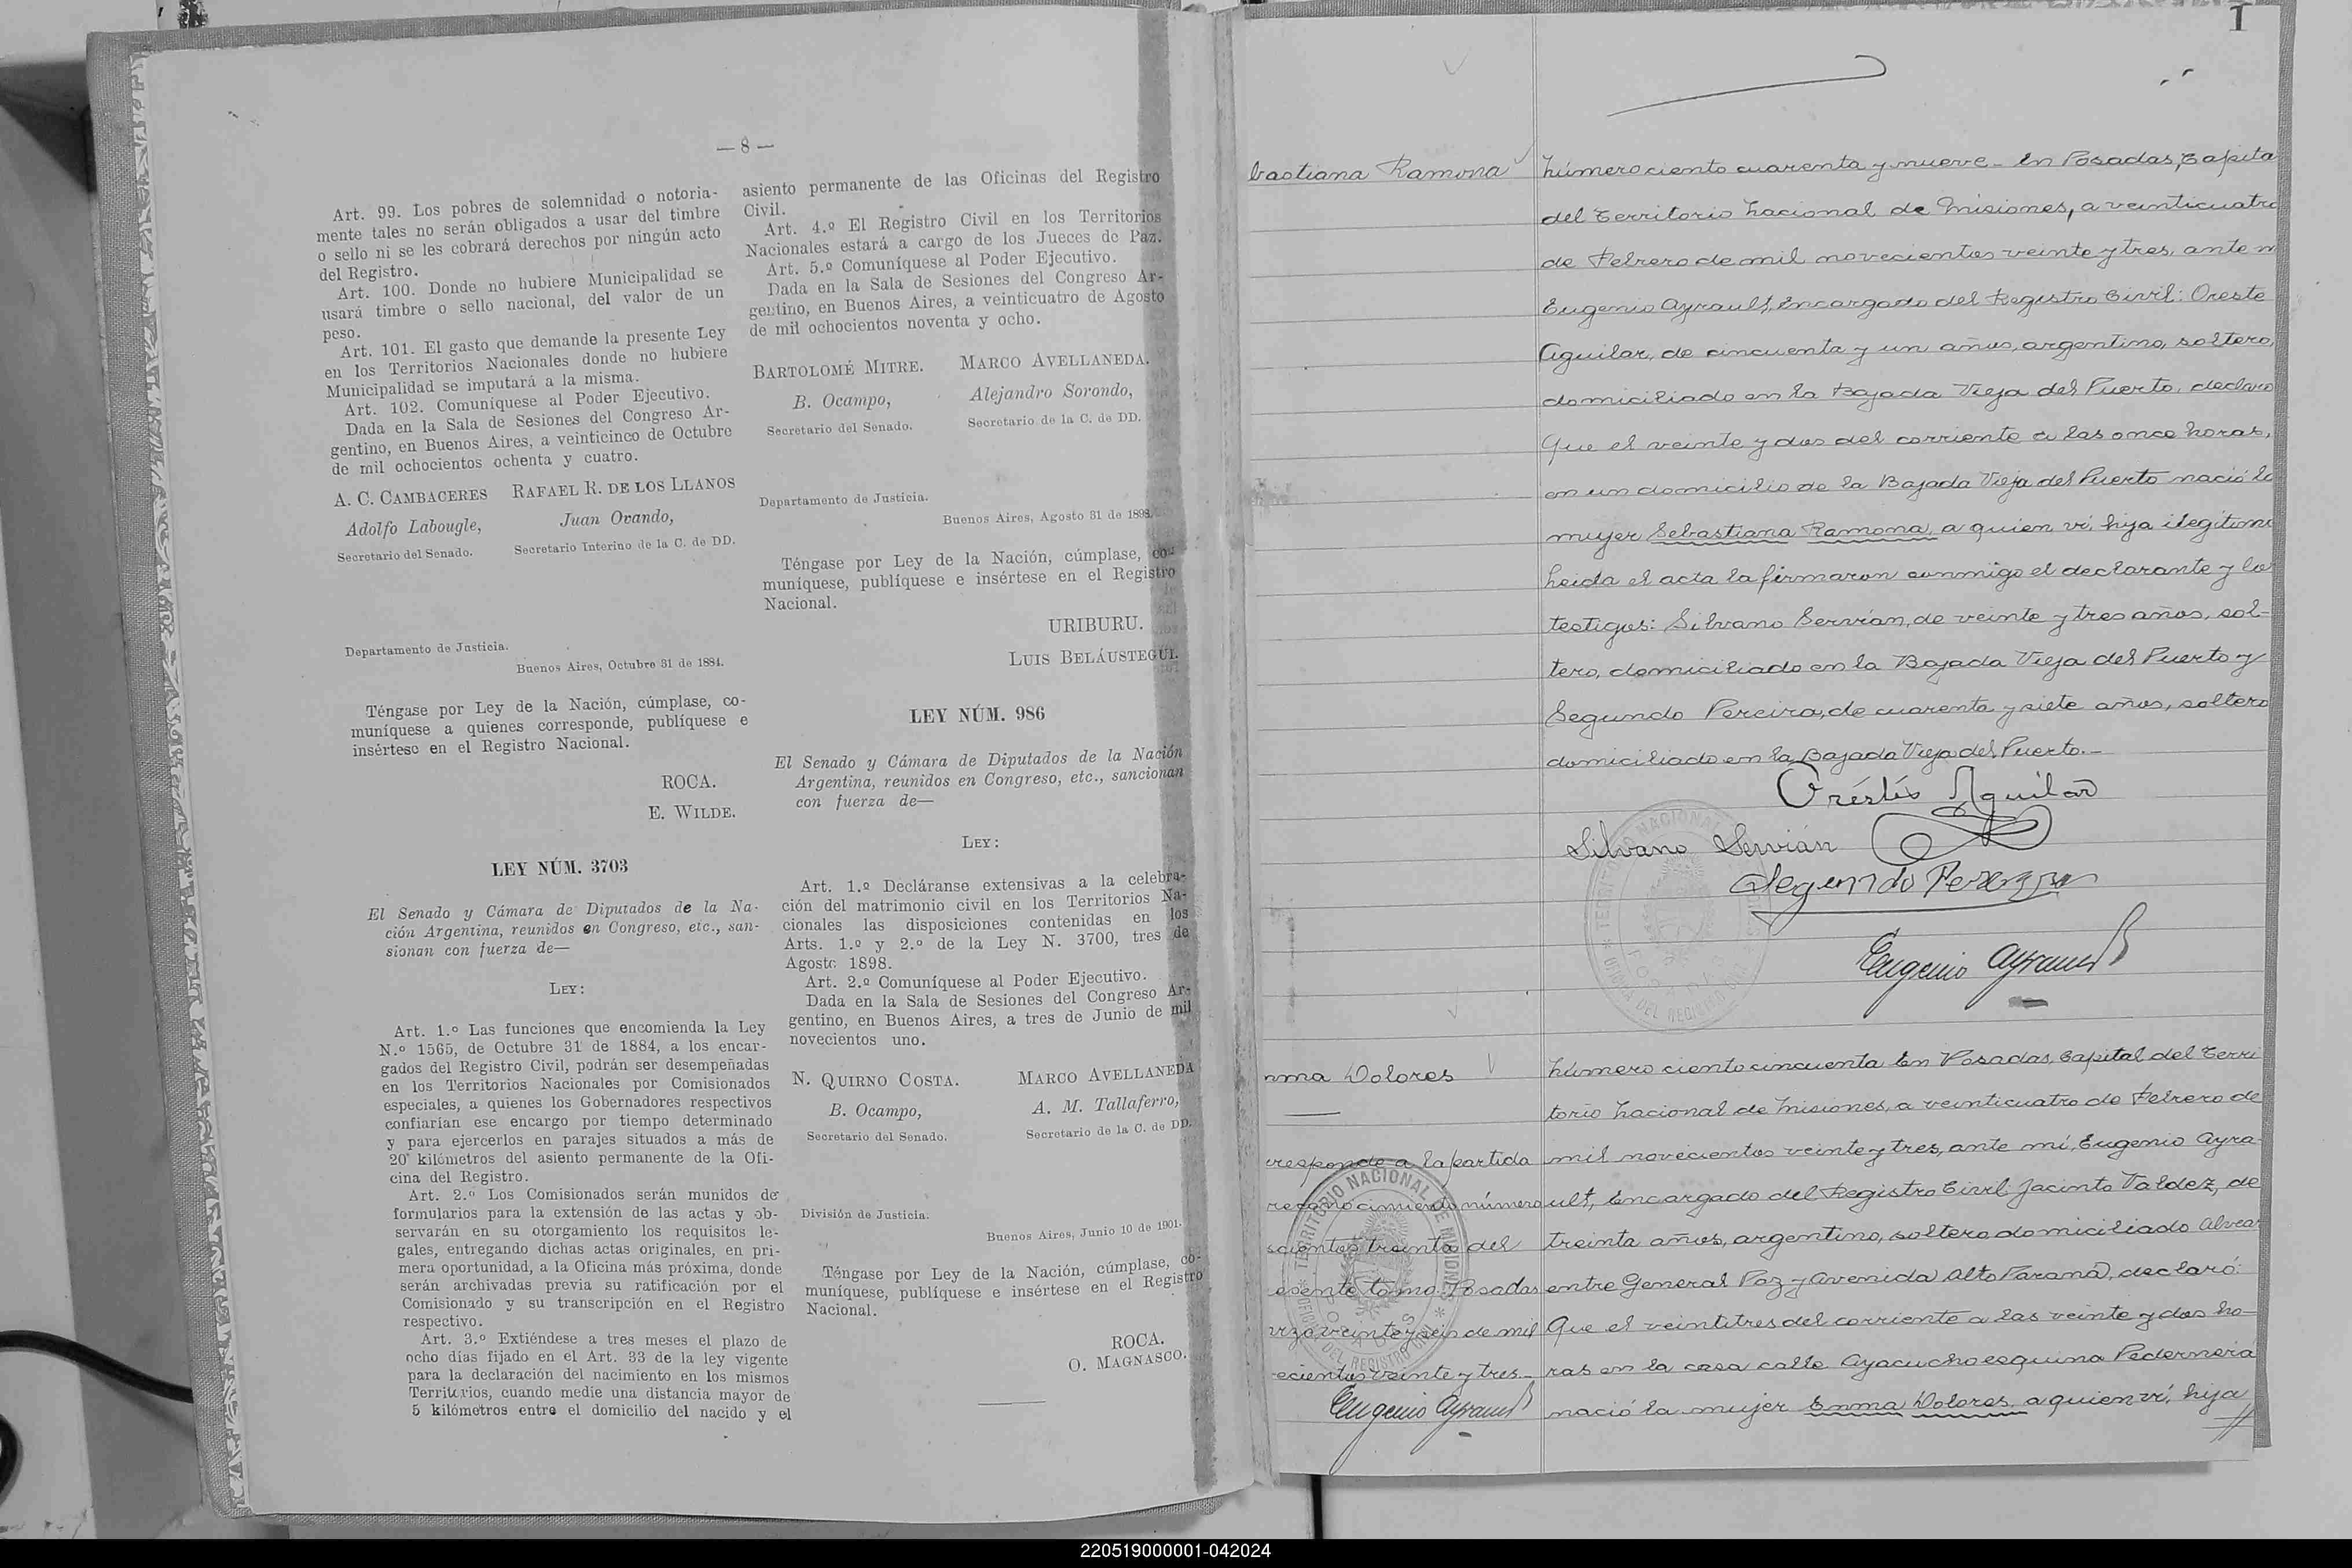 — 8 —
Art. 99. Los pobres de solemnidad o notoria-
mente tales no serán obligados a usar del timbre
o sello ni se les cobrará derechos por ningún acto
del Registro.
Art. 100. Donde no hubiere Municipalidad se
usará timbre o sello nacional, del valor de un
peso.
Art. 101. El gasto que demande la presente Ley
en los Territorios Nacionales donde no hubiere
Municipalidad se imputará a la misma.
Art. 102. Comuníquese al Poder Ejecutivo.
Dada en la Sala de Sesiones del Congreso Ar-
gentino, en Buenos Aires, a veinticinco de Octubre
de mil ochocientos ochenta y cuatro.
A. C. CAMBACERES RAFAEL R. DE LOS LLANOS
Adolfo Labougle, Juan Ovando,
Secretario del Senado. Secretario Interino de la C. de DD.
Departamento de Justicia.
Buenos Aires, Octubre 31 de 1884.
Téngase por Ley de la Nación, cúmplase, co-
muníquese a quienes corresponde, publíquese e
insértese en el Registro Nacional.
ROCA.
E. WILDE.
LEY NÚM. 3703
El Senado y Cámara de Diputados de la Na-
ción Argentina, reunidos en Congreso, etc., san-
sionan con fuerza de—
LEY:
Art. 1.º Las funciones que encomienda la Ley
N.º 1565, de Octubre 31 de 1884, a los encar-
gados del Registro Civil, podrán ser desempeñadas
en los Territorios Nacionales por Comisionados
especiales, a quienes los Gobernadores respectivos
confiarían ese encargo por tiempo determinado
y para ejercerlos en parajes situados a más de
20 kilómetros del asiento permanente de la Ofi-
cina del Registro.
Art. 2.º Los Comisionados serán munidos de
formularios para la extensión de las actas y ob-
servarán en su otorgamiento los requisitos le-
gales, entregando dichas actas originales, en pri-
mera oportunidad, a la Oficina más próxima, donde
serán archivadas previa su ratificación por el
Comisionado y su transcripción en el Registro
respectivo.
Art. 3.º Extiéndese a tres meses el plazo de
ocho días fijado en el Art. 33 de la ley vigente
para la declaración del nacimiento en los mismos
Territorios, cuando medie una distancia mayor de
5 kilómetros entre el domicilio del nacido y el
asiento permanente de las Oficinas del Registro
Civil.
Art. 4.º El Registro Civil en los Territorios
Nacionales estará a cargo de los Jueces de Paz.
Art. 5.º Comuníquese al Poder Ejecutivo.
Dada en la Sala de Sesiones del Congreso Ar-
gentino, en Buenos Aires, a veinticuatro de Agosto
de mil ochocientos noventa y ocho.
BARTOLOMÉ MITRE. MARCO AVELLANEDA.
B. Ocampo, Alejandro Sorondo,
Secretario del Senado. Secretario de la C. de DD.
Departamento de Justicia.
Buenos Aires, Agosto 31 de 1898.
Téngase por Ley de la Nación, cúmplase, co-
muníquese, publíquese e insértese en el Registro
Nacional.
URIBURU.
LUIS BELÁUSTEGUI.
LEY NÚM. 986
El Senado y Cámara de Diputados de la Nación
Argentina, reunidos en Congreso, etc., sancionan
con fuerza de—
LEY:
Art. 1.º Decláranse extensivas a la celebra-
ción del matrimonio civil en los Territorios Na-
cionales las disposiciones contenidas en los
Arts. 1.º y 2.º de la Ley N. 3700, tres de
Agosto 1898.
Art. 2.º Comuníquese al Poder Ejecutivo.
Dada en la Sala de Sesiones del Congreso Ar-
gentino, en Buenos Aires, a tres de Junio de mil
novecientos uno.
N. QUIRNO COSTA. MARCO AVELLANEDA
B. Ocampo, A. M. Tallaferro,
Secretario del Senado. Secretario de la C. de DD.
División de Justicia.
Buenos Aires, Junio 10 de 1901.
Téngase por Ley de la Nación, cúmplase, co-
muníquese, publíquese e insértese en el Registro
Nacional.
ROCA.
O. MAGNASCO.
I
bastiana Ramona
Número ciento cuarenta y nueve - En Posadas, Capita
del Territorio Nacional de Misiones, a veinticuatro
de Febrero de mil novecientos veinte y tres, ante m
Eugenio Ayrault, Encargado del Registro Civil: Oreste
Aguilar, de cincuenta y un años, argentino, soltero,
domiciliado en la Bajada Vieja del Puerto, declaró
Que el veinte y dos del corriente a las once horas,
en un domicilio de la Bajada Vieja del Puerto nació la
mujer Sebastiana Ramona, a quien ví, hija ilegitima
Leida el acta la firmaron conmigo el declarante y lo
testigos: Silvano Servian, de veinte y tres años, sol-
tero, domiciliado en la Bajada Vieja del Puerto y
Segundo Pereira, de cuarenta y siete años, soltero
domiciliado en la Bajada Vieja del Puerto.-
Oréstes Aguilar
Silvano Servián
Segundo Pereyra
Eugenio Ayrault
nma Dolores
responde a la partida
reconocimiento número
scientos treinta del
esente tomo. Posadas
rzo veinte y seis de mil
ecientos veinte y tres.-
Eugenio Ayrault
TERRITORIO NACIONAL DE MISIONES
POSADAS
OFICINA DEL REGISTRO CIVIL
Número ciento cincuenta En Posadas, Capital del Terri
torio Nacional de Misiones, a veinticuatro de Febrero de
mil novecientos veinte y tres, ante mí, Eugenio Ayra-
ult, Encargado del Registro Civil Jacinto Valdez, de
treinta años, argentino, soltero domiciliado Alvear
entre General Paz y Avenida Alto Paraná, declaró:
Que el veintitres del corriente a las veinte y dos ho-
ras en la casa calle Ayacucho esquina Pedernera
nació la mujer Enma Dolores a quien ví, hija
220519000001-042024